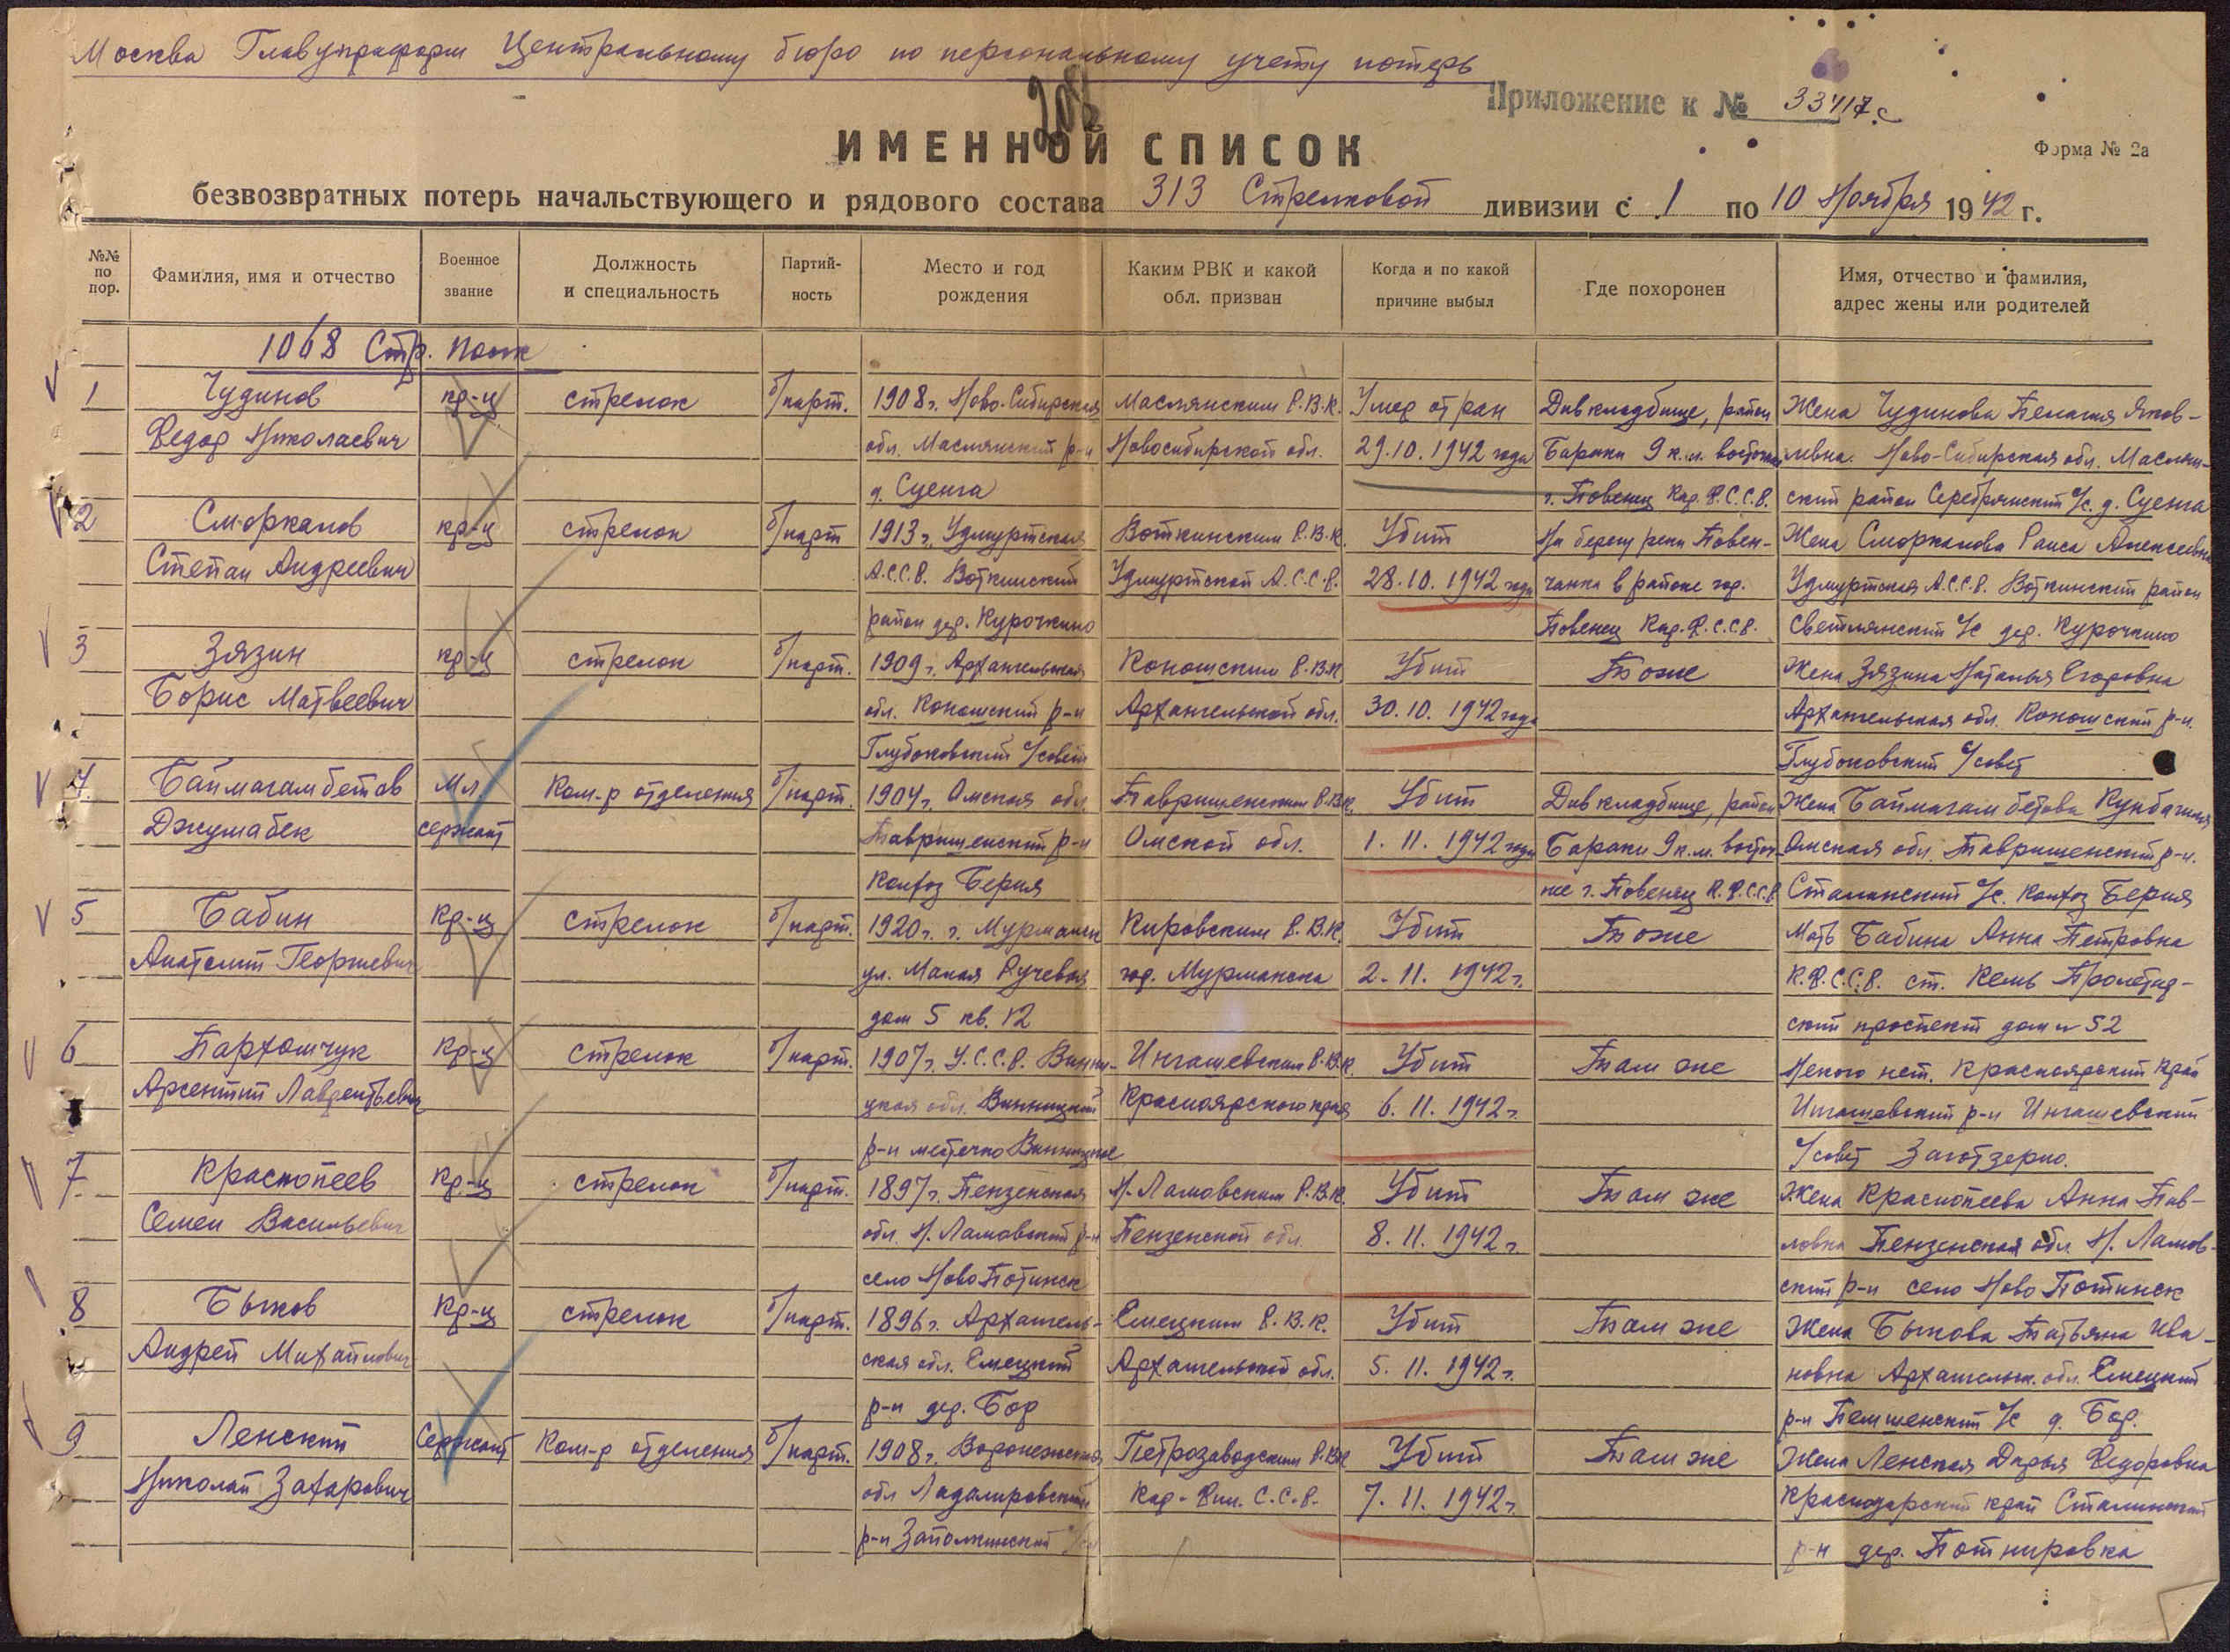 Москва Главупраформ Центральному бюро по персональному учету потерь
208
Приложение к № 33417с
ИМЕННОЙ СПИСОК
Форма № 2а
безвозвратных потерь начальствующего и рядового состава 313 Стрелковой дивизии с 1 по 10 Ноября 1942 г.
№№ по пор.
Фамилия, имя и отчество
Военное звание
Должность и специальность
Партий-ность
Место и год рождения
Каким РВК и какой обл. призван
Когда и по какой причине выбыл
Где похоронен
Имя, отчество и фамилия, адрес жены или родителей
1068 Стр. полк
1 Чудинов кр-ц стрелок б/парт. 1908г. Ново-Сибирская Маслянским Р.В.К. Умер от ран Дивкладбище, район Жена Чудинова Пелагия Яков-
Федор Николаевич обл. Маслянский р-н Новосибирской обл. 29.10.1942 года Бараки 9 к.м. восточнее левна. Ново-Сибирская обл. Маслян-
д. Суенга г. Повенец Кар.Ф.С.С.Р. ский район Серебрянский с/с. д. Суенга
2 Сморкалов кр-ц стрелок б/парт 1913г. Удмуртская Воткинским Р.В.К. Убит На берегу реки Повен- Жена Сморкалова Раиса Алексеевна
Степан Андреевич А.С.С.Р. Воткинский Удмуртской А.С.С.Р. 28.10.1942 года чанка в районе гор. Удмуртская А.С.С.Р. Воткинский район
район дер. Курочкино Повенец Кар.Ф.С.С.Р. Светлянский с/с дер. Курочкино
3 Зязин кр-ц стрелок б/парт. 1909г. Архангельская Коношским Р.В.К Убит То же Жена Зязина Наталья Егоровна
Борис Матвеевич обл. Коношский р-н Архангельской обл. 30.10.1942 года Архангельская обл. Коношский р-н.
Глубоковский с/совет Глубоковский с/совет
4. Баймагамбетов Мл. Ком-р отделения б/парт. 1904г. Омская обл. Таврищенским Р.В.К. Убит Дивкладбище, район Жена Баймагамбетова
Джумабек сержант Таврищенский р-н Омской обл. 1.11.1942 года Бараки 9 к.м. восточ- Омская обл. Таврищенский р-н.
Колхоз Берия нее г. Повенец К.Ф.С.С.Р. Сталинский с/с. Колхоз Берия
5 Бабин Кр-ц стрелок б/парт. 1920г. г. Мурманск Кировским Р.В.К Убит То же Мать Бабина Анна Петровна
Анатолий Георгиевич ул. Малая Ручевая гор. Мурманска 2.11.1942г. К.Ф.С.С.Р. ст. Кемь Пролетар-
дом 5 кв. 12 ский проспект дом № 52
6 Пархомчук Кр-ц стрелок б/парт. 1907г. У.С.С.Р. Винни- Ингашевским Р.В.К. Убит Там же Некого нет. Красноярский край
Арсентий Лаврентьевич цкая обл. Винницкий Красноярского края 6.11.1942г. Ингашевский р-н Ингашевский
р-н местечко с/совет Заготзерно.
7 Краснопеев Кр-ц стрелок б/парт. 1897г. Пензенская Н.-Ламовским Р.В.К. Убит Там же Жена Краснопеева Анна Пав-
Семен Васильевич обл. Н. Ламовский р-н Пензенской обл. 8.11.1942г. ловна Пензенская обл. Н. Ламов-
село Ново Потинск ский р-н село Ново Потинск
8 Быков Кр-ц стрелок б/парт. 1896г. Архангель- Емецким Р.В.К. Убит Там же Жена Быкова Татьяна Ива-
Андрей Михайлович ская обл. Емецкий Архангельской обл. 5.11.1942г. новна Архангельск. обл. Емецкий
р-н дер. Бор р-н с/с д. Бор.
9 Ленский Сержант Ком-р отделения б/парт. 1908г. Воронежская Петрозаводским Р.В.К Убит Там же Жена Ленская Дарья Федоровна
Николай Захарович обл Ладамировский Кар-Фин. С.С.Р. 7.11.1942г. Краснодарский край Сталинский
р-н дер.